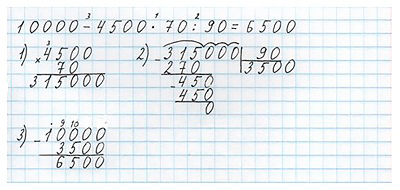 10000 - 4500 · 70 : 90 = 6500
3 1 2
1) × 4500
70
315000
2) - 315000 | 90
270 3500
- 450
450
0
3) - 10000
9 10
3500
6500